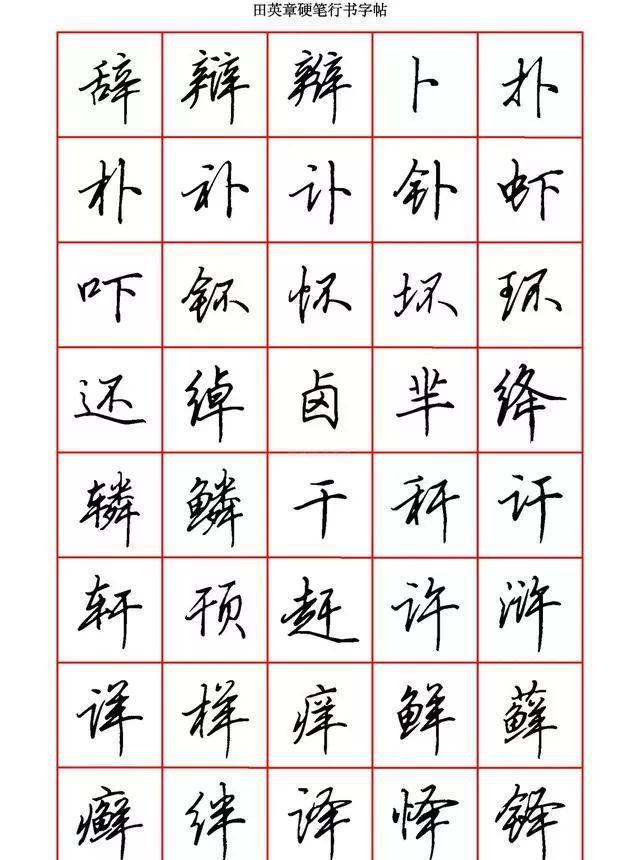 田英章硬笔行书字帖
辞 辩 辨 卜 扑
朴 补 讣 钋 虾
吓 钚 怀 坏 环
还 绰 卤 芈 绛
辚 鳞 干 秆 讦
轩 顸 赶 许 浒
详 样 痒 鲜 藓
癣 绊 译 怿 铎